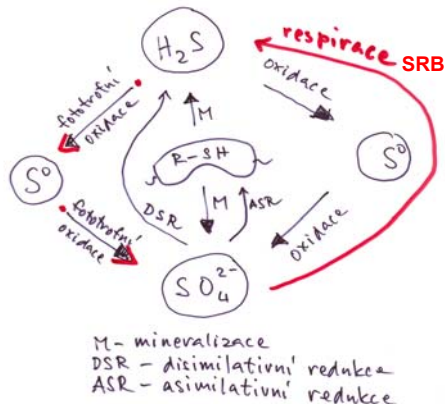 H2S
respirace SRB
fototrofní
oxidace
oxidace
M
R-SH
S°
S°
DSR
M
ASR
fototrofní
oxidace
oxidace
SO4 2-
M - mineralizace
DSR - disimilativní redukce
ASR - asimilativní redukce